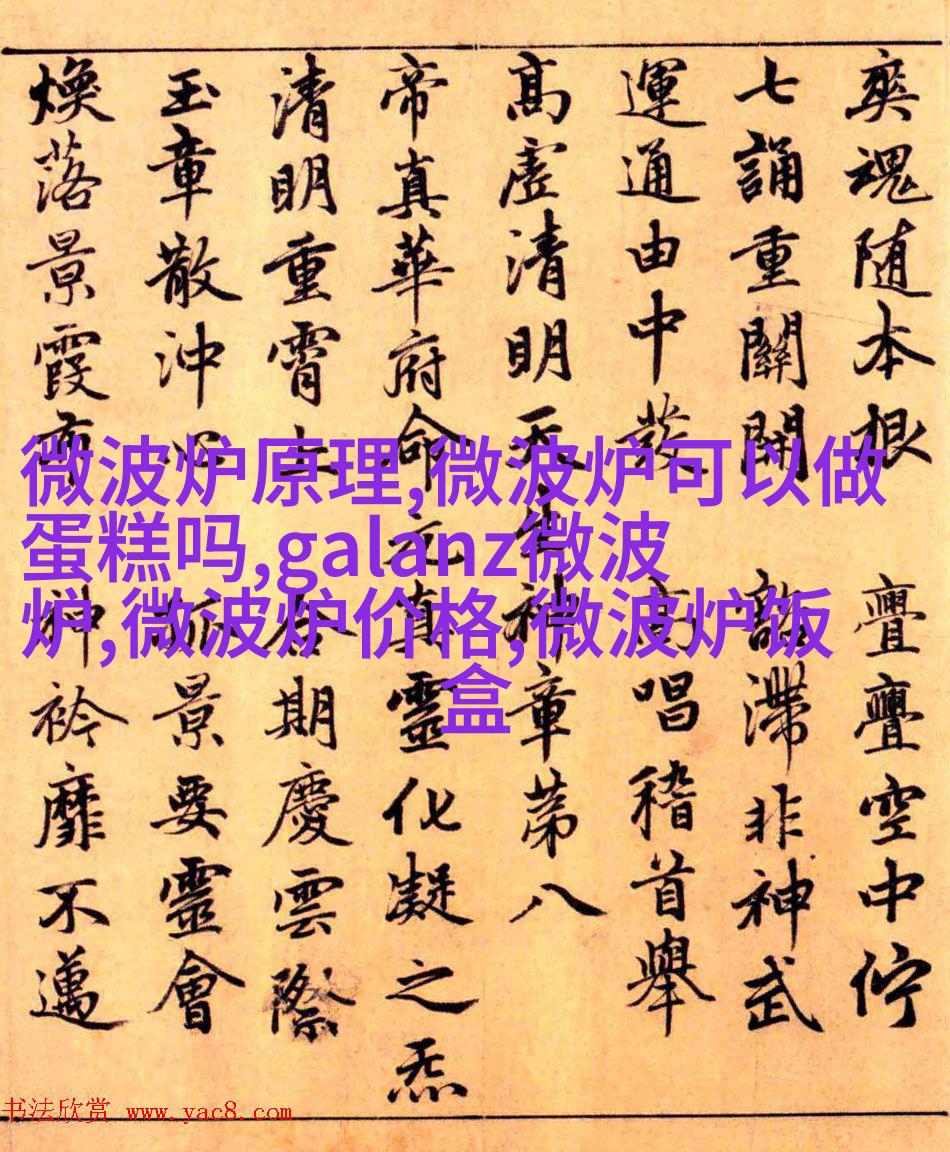 奕魂随本根 亹亹空中佇
七誦重關開 滯非神武
運通由中發 高唱稽首舉
高虛清明天 神章第八
帝真華府命元真靈化凝之炁
清明重霄上 合期慶雲際
玉章散沖心 孤景要靈會
煥落景霞 神衿靡不邁
微波炉原理,微波炉可以做
蛋糕吗,galanz微波
炉,微波炉价格,微波炉饭
盒
书法欣赏 www.yac8.com